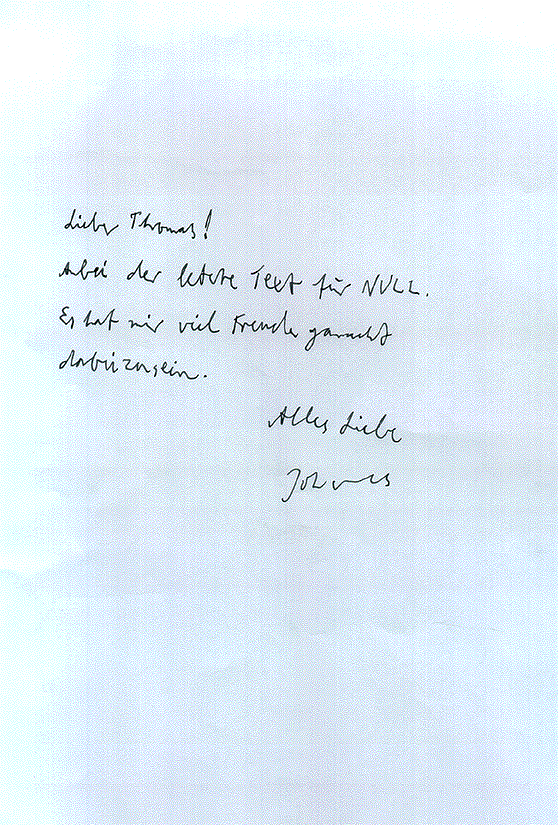 Lieber Thomas!
Anbei der letzte Text für NULL.
Es hat mir viel Freude gemacht
dabeizusein.
Alles Liebe
Johannes